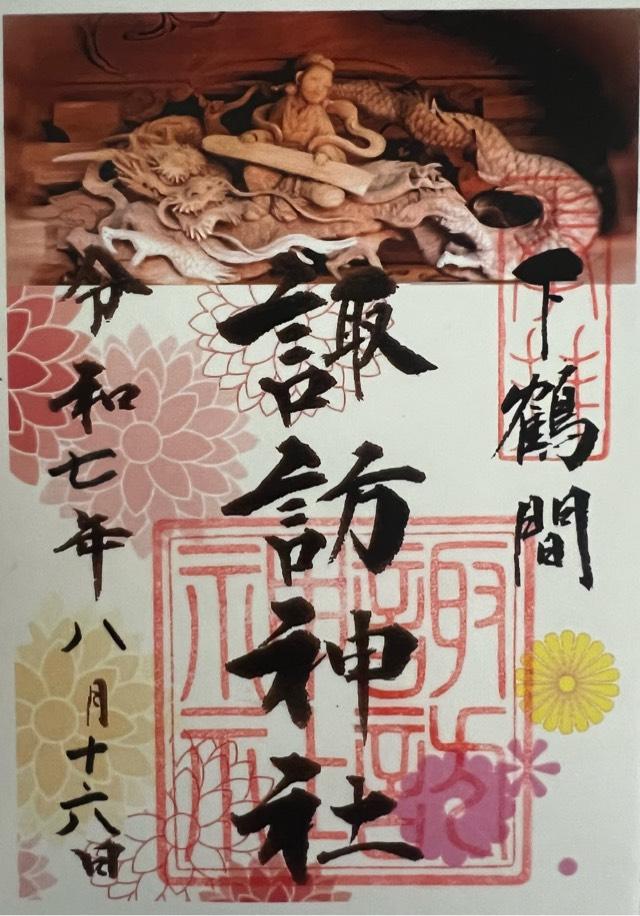 下鶴間
諏訪神社
令和七年八月十六日
諏訪神社